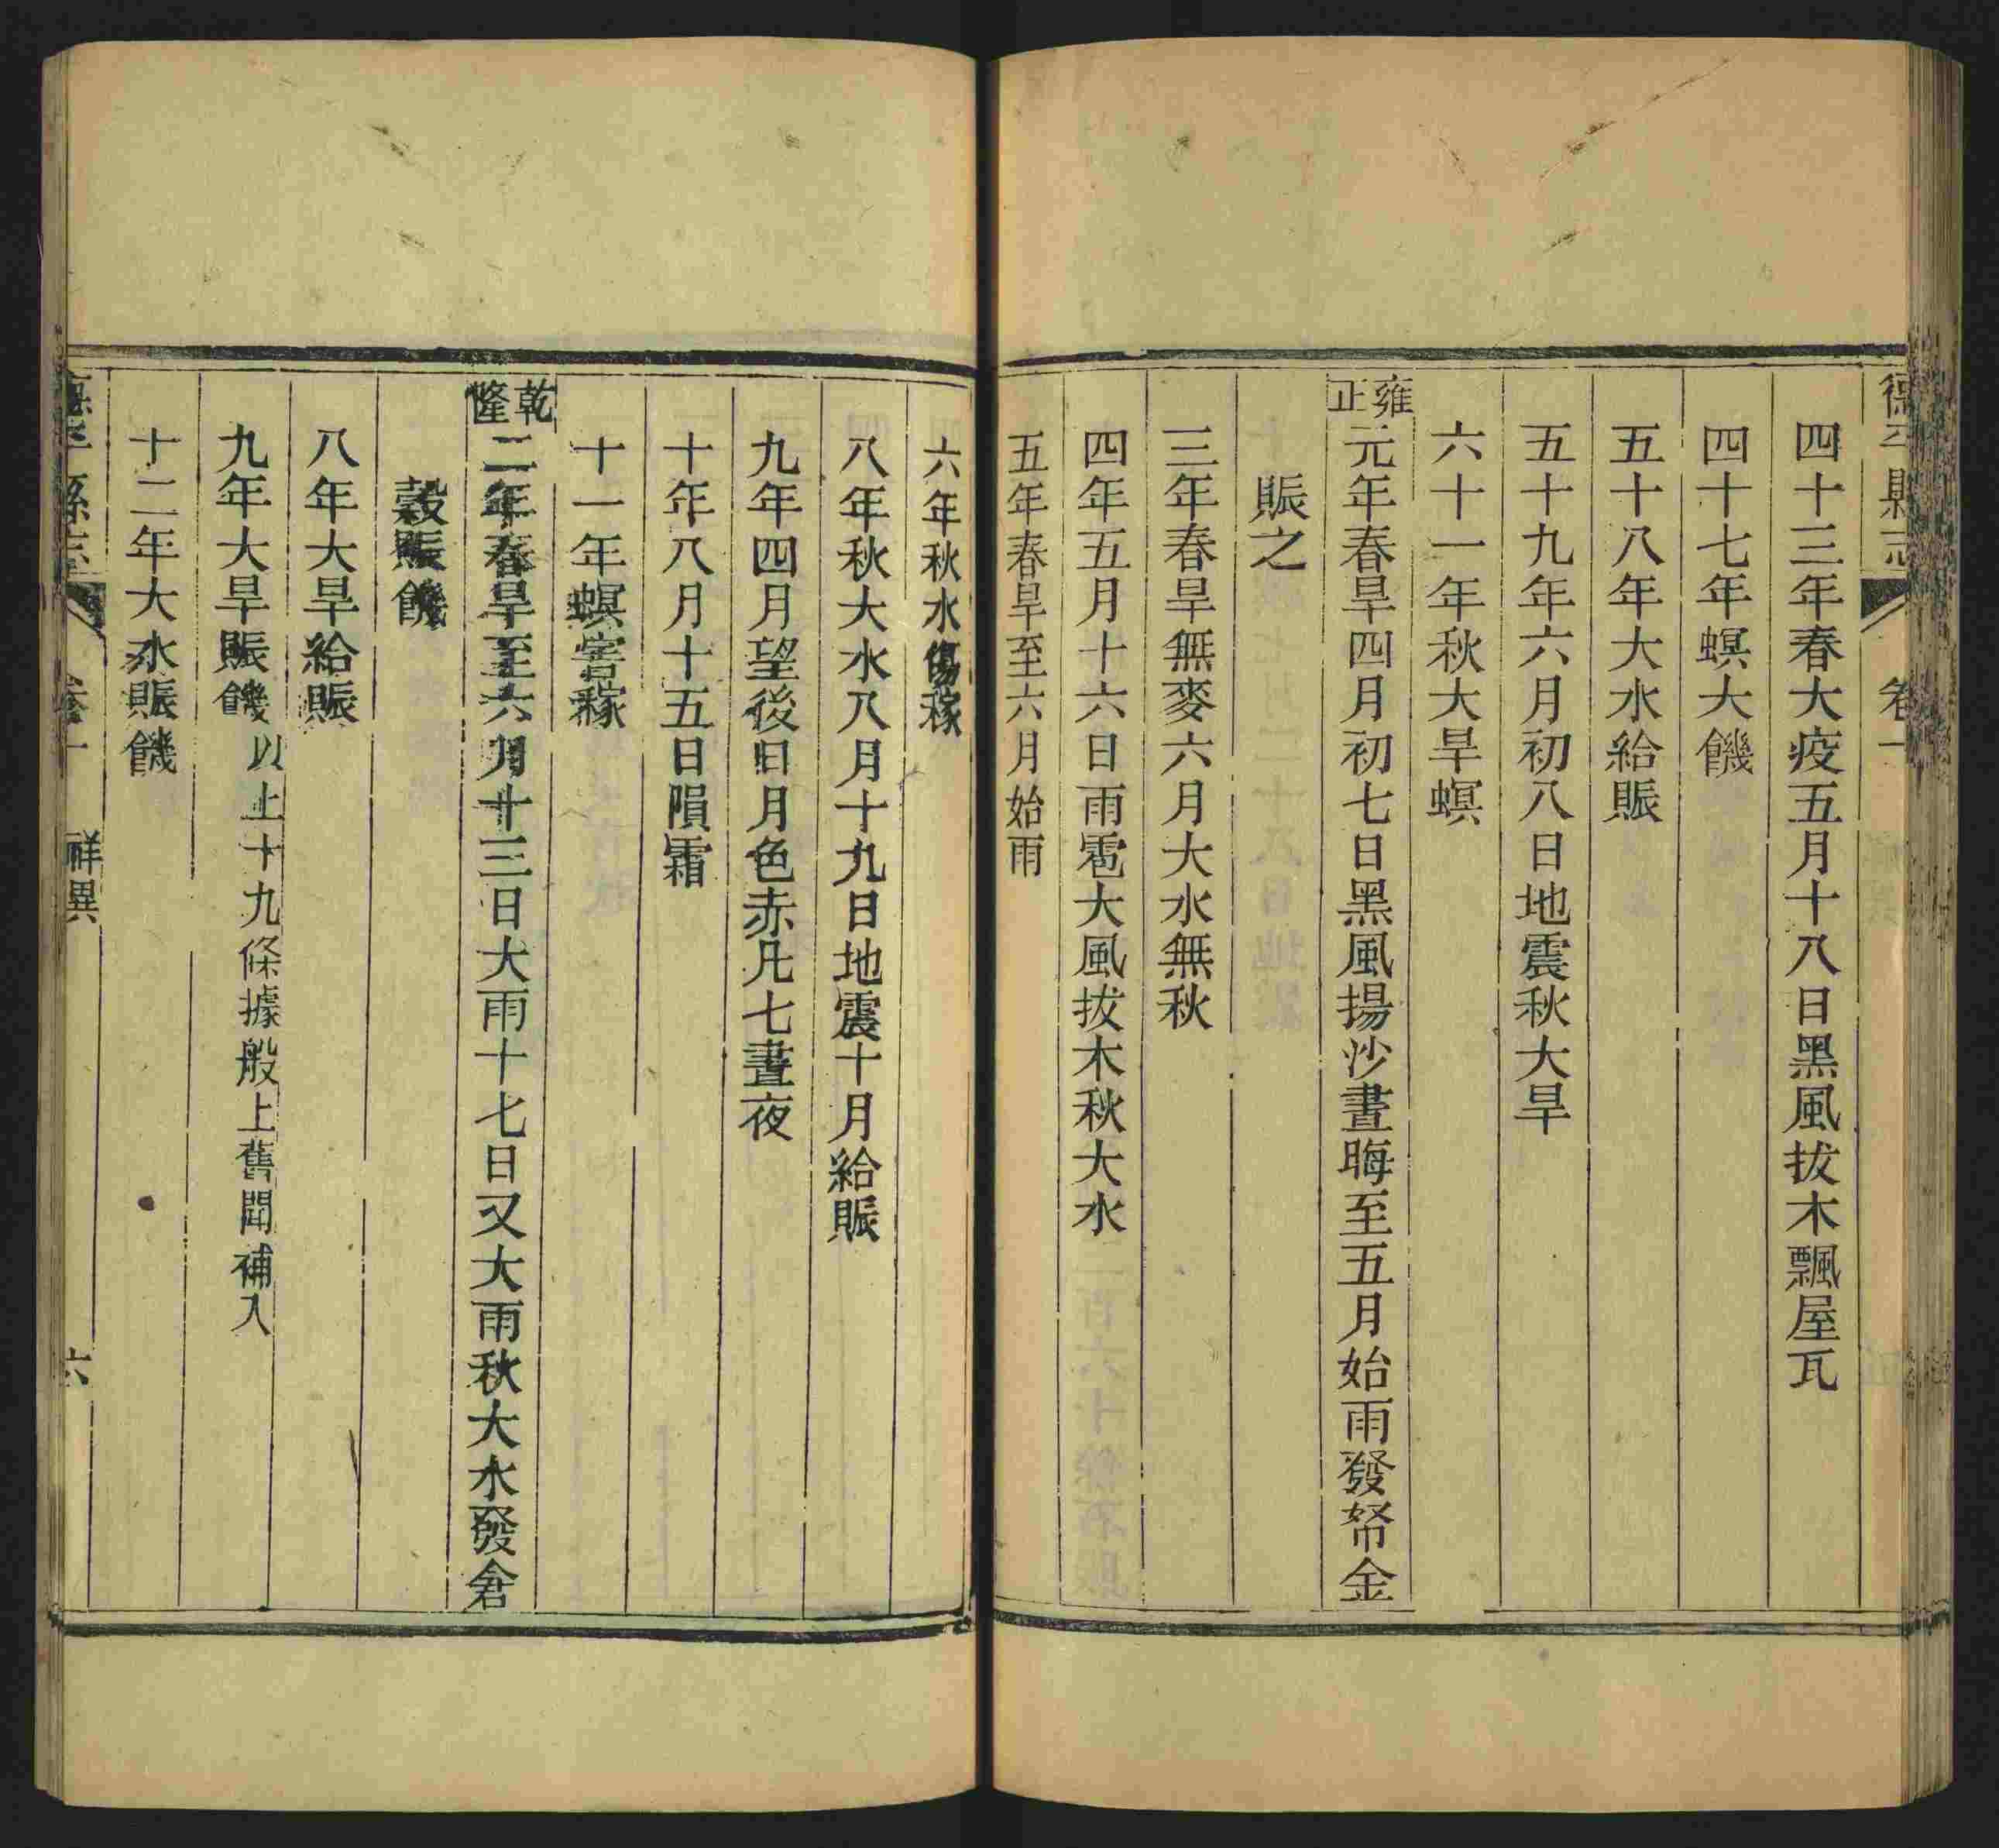 德平縣志　卷十
四十三年春大疫五月十八日黑風拔木飄屋瓦
四十七年螟大饑
五十八年大水給賑
五十九年六月初八日地震秋大旱
六十一年秋大旱螟
雍正元年春旱四月初七日黑風揚沙晝晦至五月始雨發帑金
賑之
三年春旱無麥六月大水無秋
四年五月十六日雨雹大風拔木秋大水
五年春旱至六月始雨
六年秋水傷稼
八年秋大水八月十九日地震十月給賑
九年四月望後日月色赤凡七晝夜
十年八月十五日隕霜
十一年螟害稼
乾隆二年春旱至六月十三日大雨十七日又大雨秋大水發倉
穀賑饑
八年大旱給賑
九年大旱賑饑以上十九條據般上舊聞補入
十二年大水賑饑
德平縣志　卷十　祥異　六